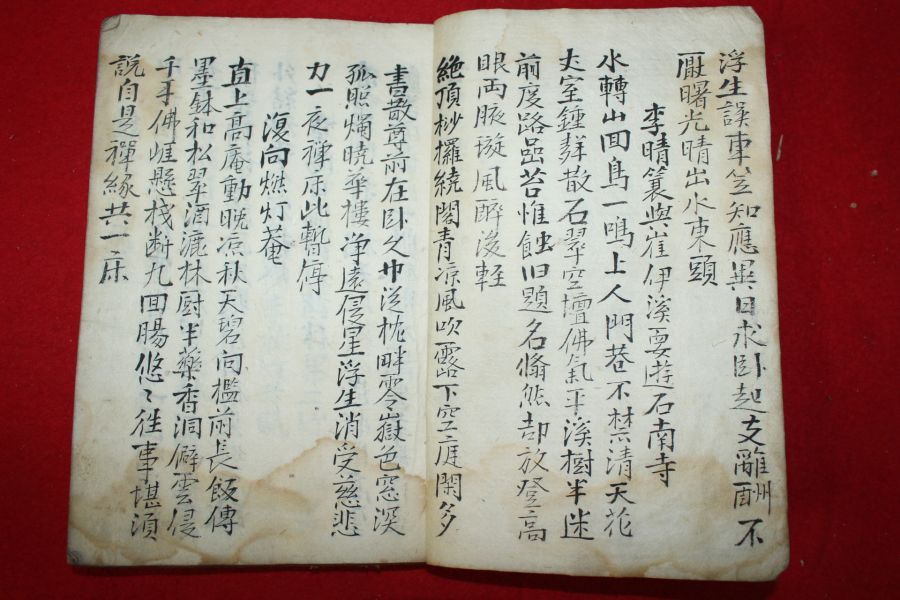 浮生誤車笠知應異日求卧起支離酬不
厭曙光晴出水東頭
李晴蓑與崔伊溪要遊石南寺
水轉山回鳥一鳴上人門巷不禁清天花
丈室鍾聲散石翠空壇佛氣平溪樹半迷
前度路嵒苔惟蝕旧題名翛然却放登高
眼両腋漩風醉後輕
絶頂杪欏繞閣青凉風吹露下空庭閑多
書散尊前在卧久巾從枕畔零嶽色窓深
孤照燭曉華樓净遠侵星浮生消受慈悲
力一夜禪床此暫停
復向燃灯菴
直上高庵動晩凉秋天碧向檻前長飯傳
墨鉢和松翠酒漉林厨半藥香洞僻雲侵
千手佛崖懸棧断九回腸悠〻徃事堪須
說自是禪緣共一床